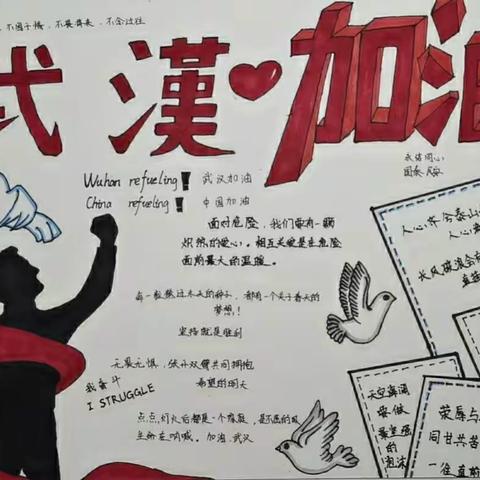 不困于情，不畏将来，不念过往
武漢❤加油
众志同心
国泰民安
Wuhan refueling! 武汉加油
China refueling! 中国加油
面对危险，我们都有一颗
炽热的爱心。相互关爱是在危险
面前最大的温暖。
每一粒熬过冬天的种子，都有一个关于春天的
梦想！！
坚持就是胜利
无畏无惧，张开双臂共同拥抱
希望的明天
我奋斗
I STRUGGLE
点点灯火后都是一个家庭，
生命在呐喊。加油，武汉
人心齐，泰山
人心
长风破浪会有
直挂
天空辜调
要做
的
泡沫
荣辱与
同甘共苦
一往直前